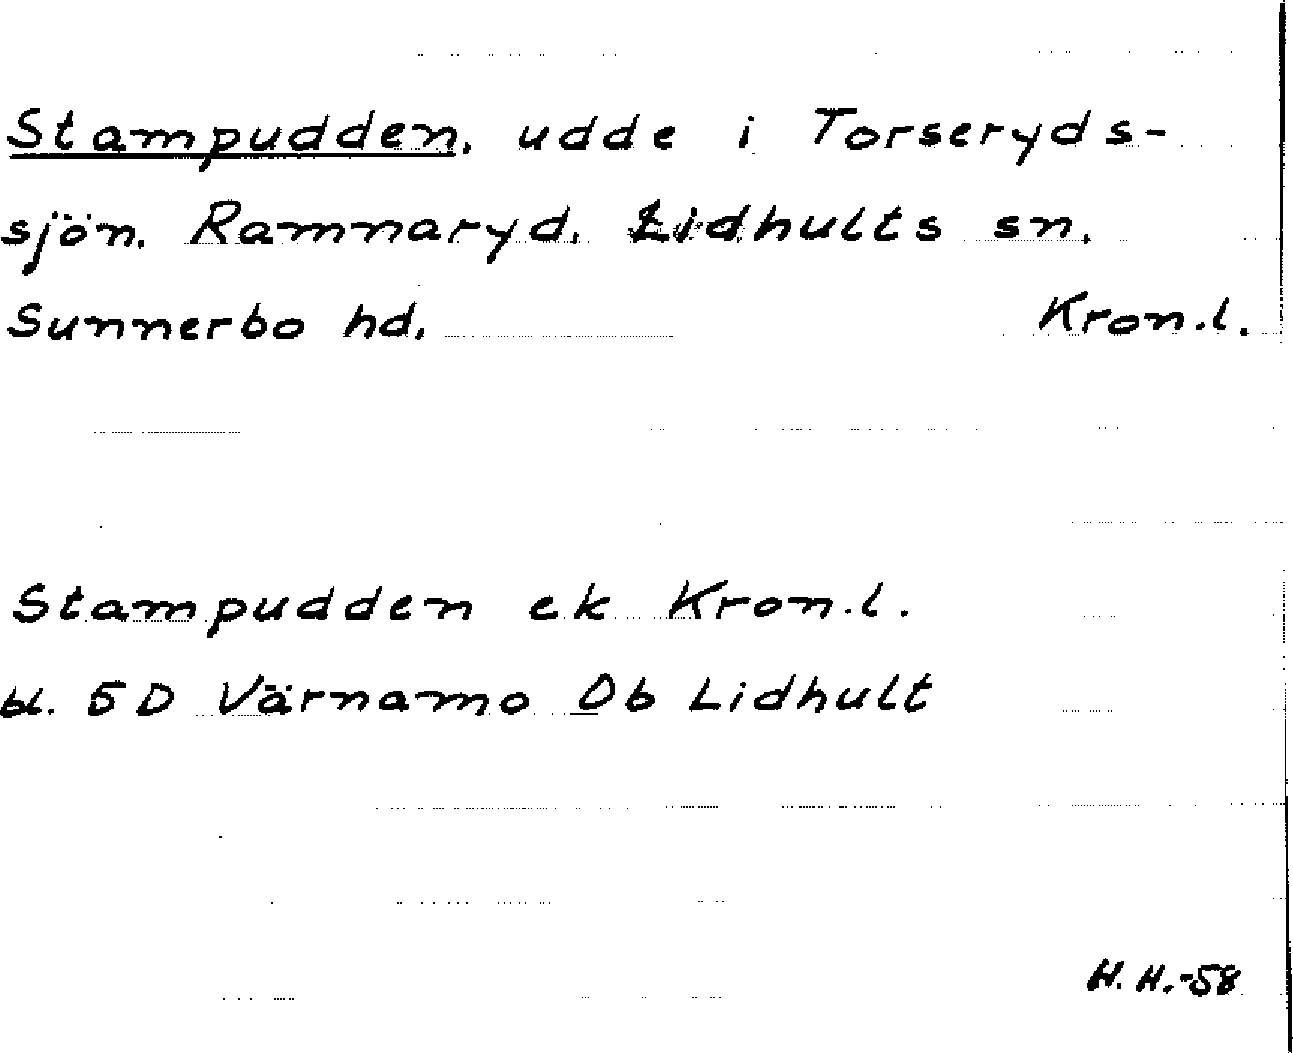 Stampudden, udde i Torseryds-
sjön. Ramnaryd. Lidhults sn.
Sunnerbo hd. Kron.l.
Stampudden ek Kron.l.
bl. 5D Värnamo Ob Lidhult
H.H.-58